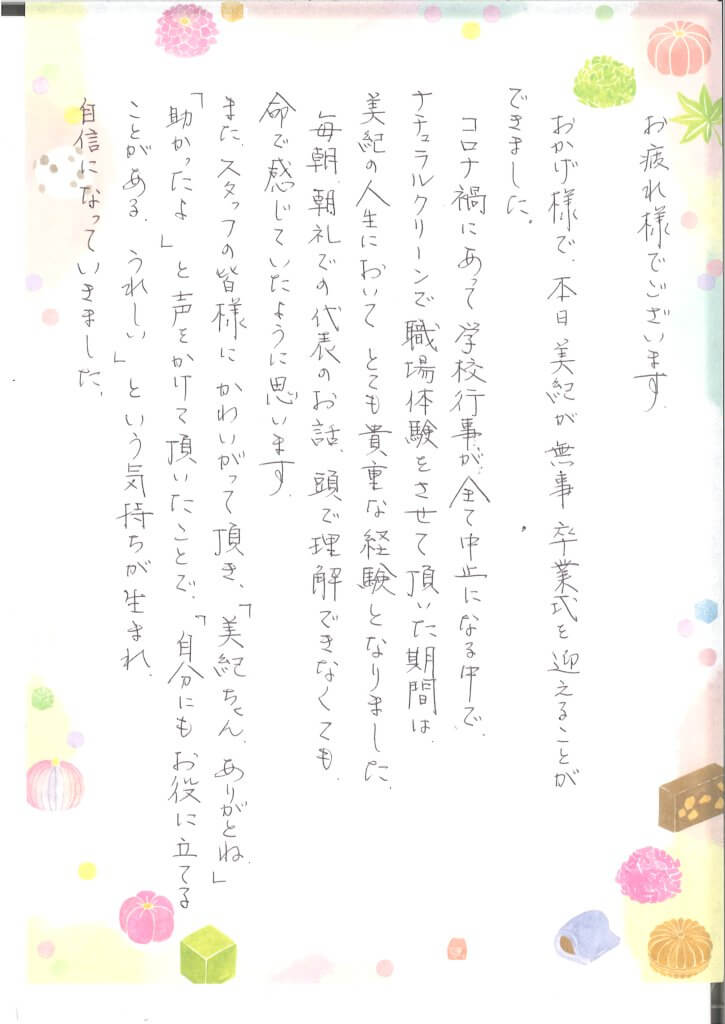 お疲れ様でございます。
おかげ様で、本日美紀が無事卒業式を迎えることが
できました。
コロナ禍にあって学校行事が全て中止になる中で、
ナチュラルクリーンで職場体験をさせて頂いた期間は、
美紀の人生においてとても貴重な経験となりました。
毎朝、朝礼での代表のお話、頭で理解できなくても、
命で感じていたように思います。
また、スタッフの皆様にかわいがって頂き、「美紀ちゃん、ありがとね。」
「助かったよ」と声をかけて頂いたことで、「自分にもお役に立てる
ことがある。うれしい」という気持ちが生まれ、
自信になっていきました。